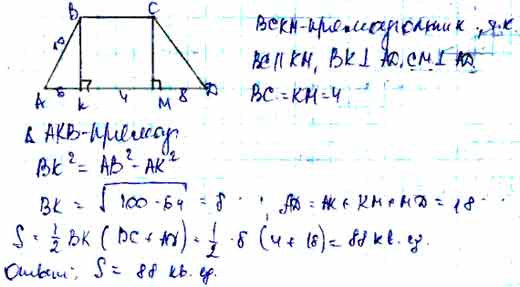 B C
10
A 6 K 4 M 8 D
BCKM - прямоугольник, т.к.
BC || KM, BK ⊥ AD, CM ⊥ AD.
BC = KM = 4
Δ AKB - прямоуг.
BK² = AB² - AK²
BK = √100 - 64 = 8 ; AD = AK + KM + MD = 18
S = 1/2 BK (BC + AD) = 1/2 · 8 (4 + 18) = 88 кв. ед.
Ответ: S = 88 кв. ед.